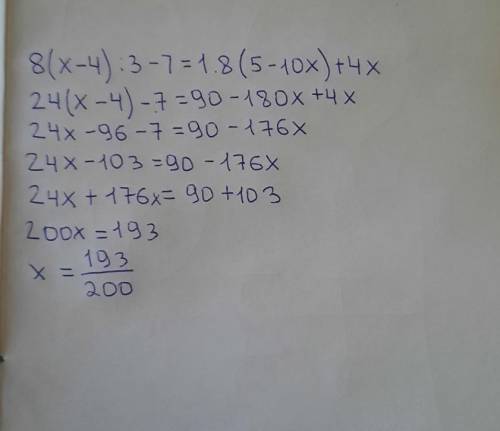 8(x-4):3-7=1.8(5-10x)+4x
24(x-4)-7=90-180x+4x
24x-96-7=90-176x
24x-103=90-176x
24x+176x=90+103
200x=193
x=193/200